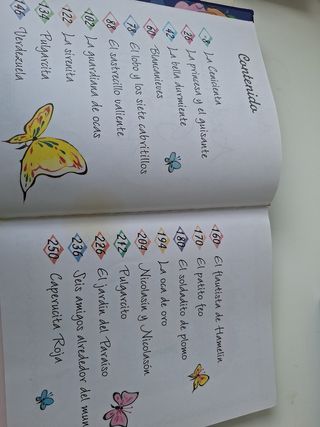 Contenido
7 La Cenicienta
26 La princesa y el guisante
47 La bella durmiente
60 Blancanieves
78 El lobo y los siete cabritillos
88 El sastrecillo valiente
102 La guardiana de ocas
122 La sirenita
134 Pulgarcita
146 Verdezuela
160 El flautista de Hamelín
170 El patito feo
180 El soldadito de plomo
194 La oca de oro
204 Nicolasín y Nicolasón
212 Pulgarcito
226 El jardín del Paraíso
236 Seis amigos alrededor del mun
250 Caperucita Roja